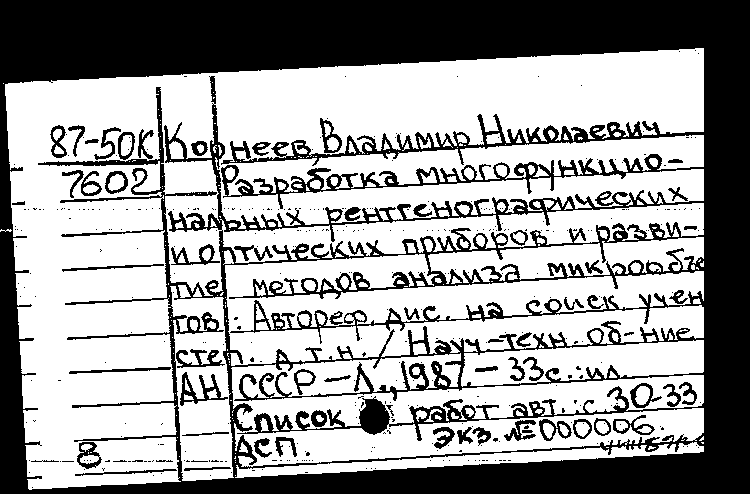 87-50К Корнеев, Владимир Николаевич.
7602 Разработка многофункцио-
нальных рентгенографических
и оптических приборов и разви-
тие методов анализа микрообъе
тов: Автореф. дис. на соиск. учен
степ. д.т.н. / Науч-техн. об-ние
АН СССР. — Л., 1987. — 33 с.: ил.
Список работ авт.: с. 30-33
8 ДСП. Экз. № 000006.